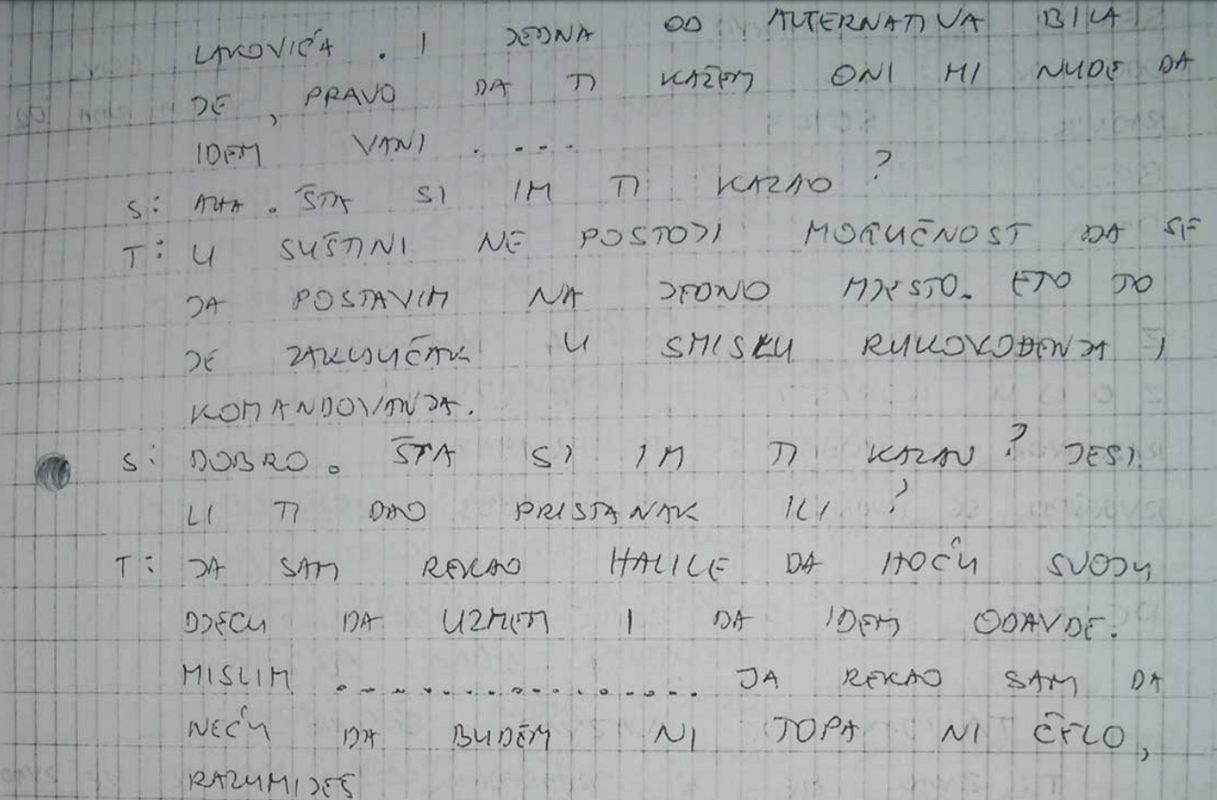 LAKOVIĆA . I JEDNA OD ALTERNATIVA BILA
JE , PRAVO DA TI KAŽEM ONI MI NUDE DA
IDEM VANI . . . .
S: AHA . ŠTA SI IM TI KAZAO ?
T: U SUŠTINI NE POSTOJI MOGUĆNOST DA SE
JA POSTAVIM NA JEDNO MJESTO. ETO TO
JE ZAKLJUČAK U SMISLU RUKOVOĐENJA I
KOMANDOVANJA.
S: DOBRO. ŠTA SI IM TI KAZAO ? JESI
LI TI DAO PRISTANAK ILI ?
T: JA SAM REKAO HALILE DA HOĆU SVOJU
DJECU DA UZMEM I DA IDEM ODAVDE.
MISLIM . . . . . . . . . . . . . . . . JA REKAO SAM DA
NEĆU DA BUDEM NI TOPA NI ČELO,
RAZUMIJEŠ